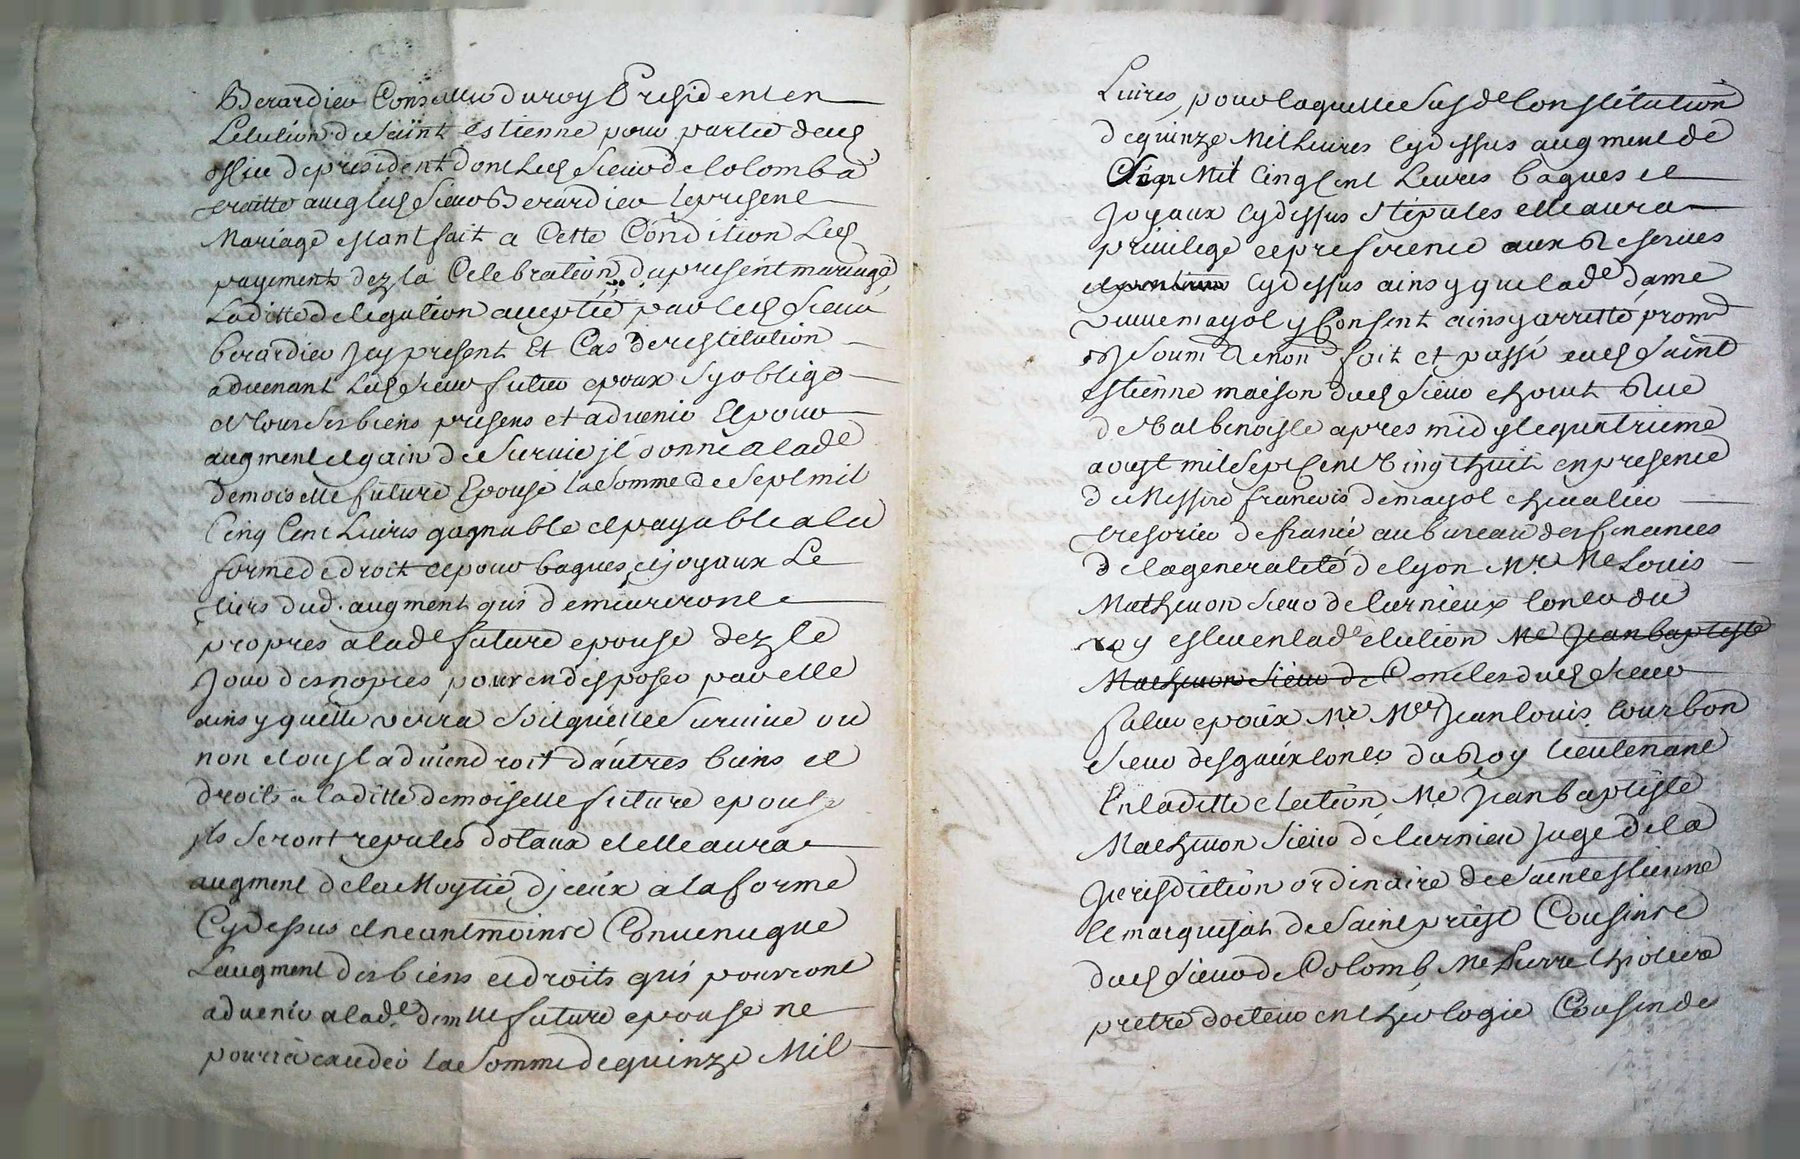 Berardier Conseiller du roy President en
Lelection de Saint estienne pour partie dud
office de president dont led Sieur de Colomb a
traitté avec led Sieur Berardier le present
Mariage estant fait a Cette Condition Led
payement dez la Celebration du present mariage
Laditte delegation acceptée par led Sieur
berardier Jcy present Et Cas de restitution
advenant Led Sieur futur epoux sy oblige
et tous ses biens presens et advenir Et pour
augment et gain de Survie jl donne a lade
demoiselle future Epouse la Somme de Sept mil
Cinq Cent Livres gagnable et payable a la
forme de droit et pour bagues et joyaux Le
tiers dud. augment qui demeureront
propres a lade future epouse dez le
Jour des nopces pour en disposer par elle
ainsy quelle verra Soit quelle Survive ou
non et ou jl adviendroit d'autres biens et
droits a laditte demoiselle future epouse
jls Seront reputés dotaux et elle aura
augment de la Moytié djceux a la forme
Cy dessus et neantmoins Convenu que
Laugment des biens et droits qui pourront
advenir a lade. demlle future epouse ne
pourra exceder la Somme de quinze Mil
Livres, pour laquelle Sus de Constitution
de quinze Mil Livres Cy dessus augment de
Sept Mil Cinq Cent Livres bagues et
Joyaux Cy dessus stipulés elle aura
privilege et preference aux Reserves
Cy dessus ainsy que lade Dame
veuve mayol y Consent ainsy arretté prom
Soum Renon fait et passé aud Saint
Estienne maison dud Sieur Rue
de Valbenoiste apres midy le quatrieme
aoust mil Sept Cent Vingt huit en presence
de Messire francois de mayol chevalier
tresorier de france au bureau des finances
de la generalité de lyon Mr. Me Louis
Mathevon Sieur de Curnieux Coner du
roy esleu en lade election Me Jean baptiste
Mathevon Sieur de Oncles dud Sieur
futur epoux Mr Me Jean louis Courbon
Sieur des gaux Coner du Roy lieutenant
En laditte election Me Jean baptiste
Mathevon Sieur de Curnieu Juge de la
Jurisdiction ordinaire de Saint estienne
et marquisat de Saint priest Cousins
dud Sieur de Colomb, Me Pierre
pretre docteur en theologie Cousin de